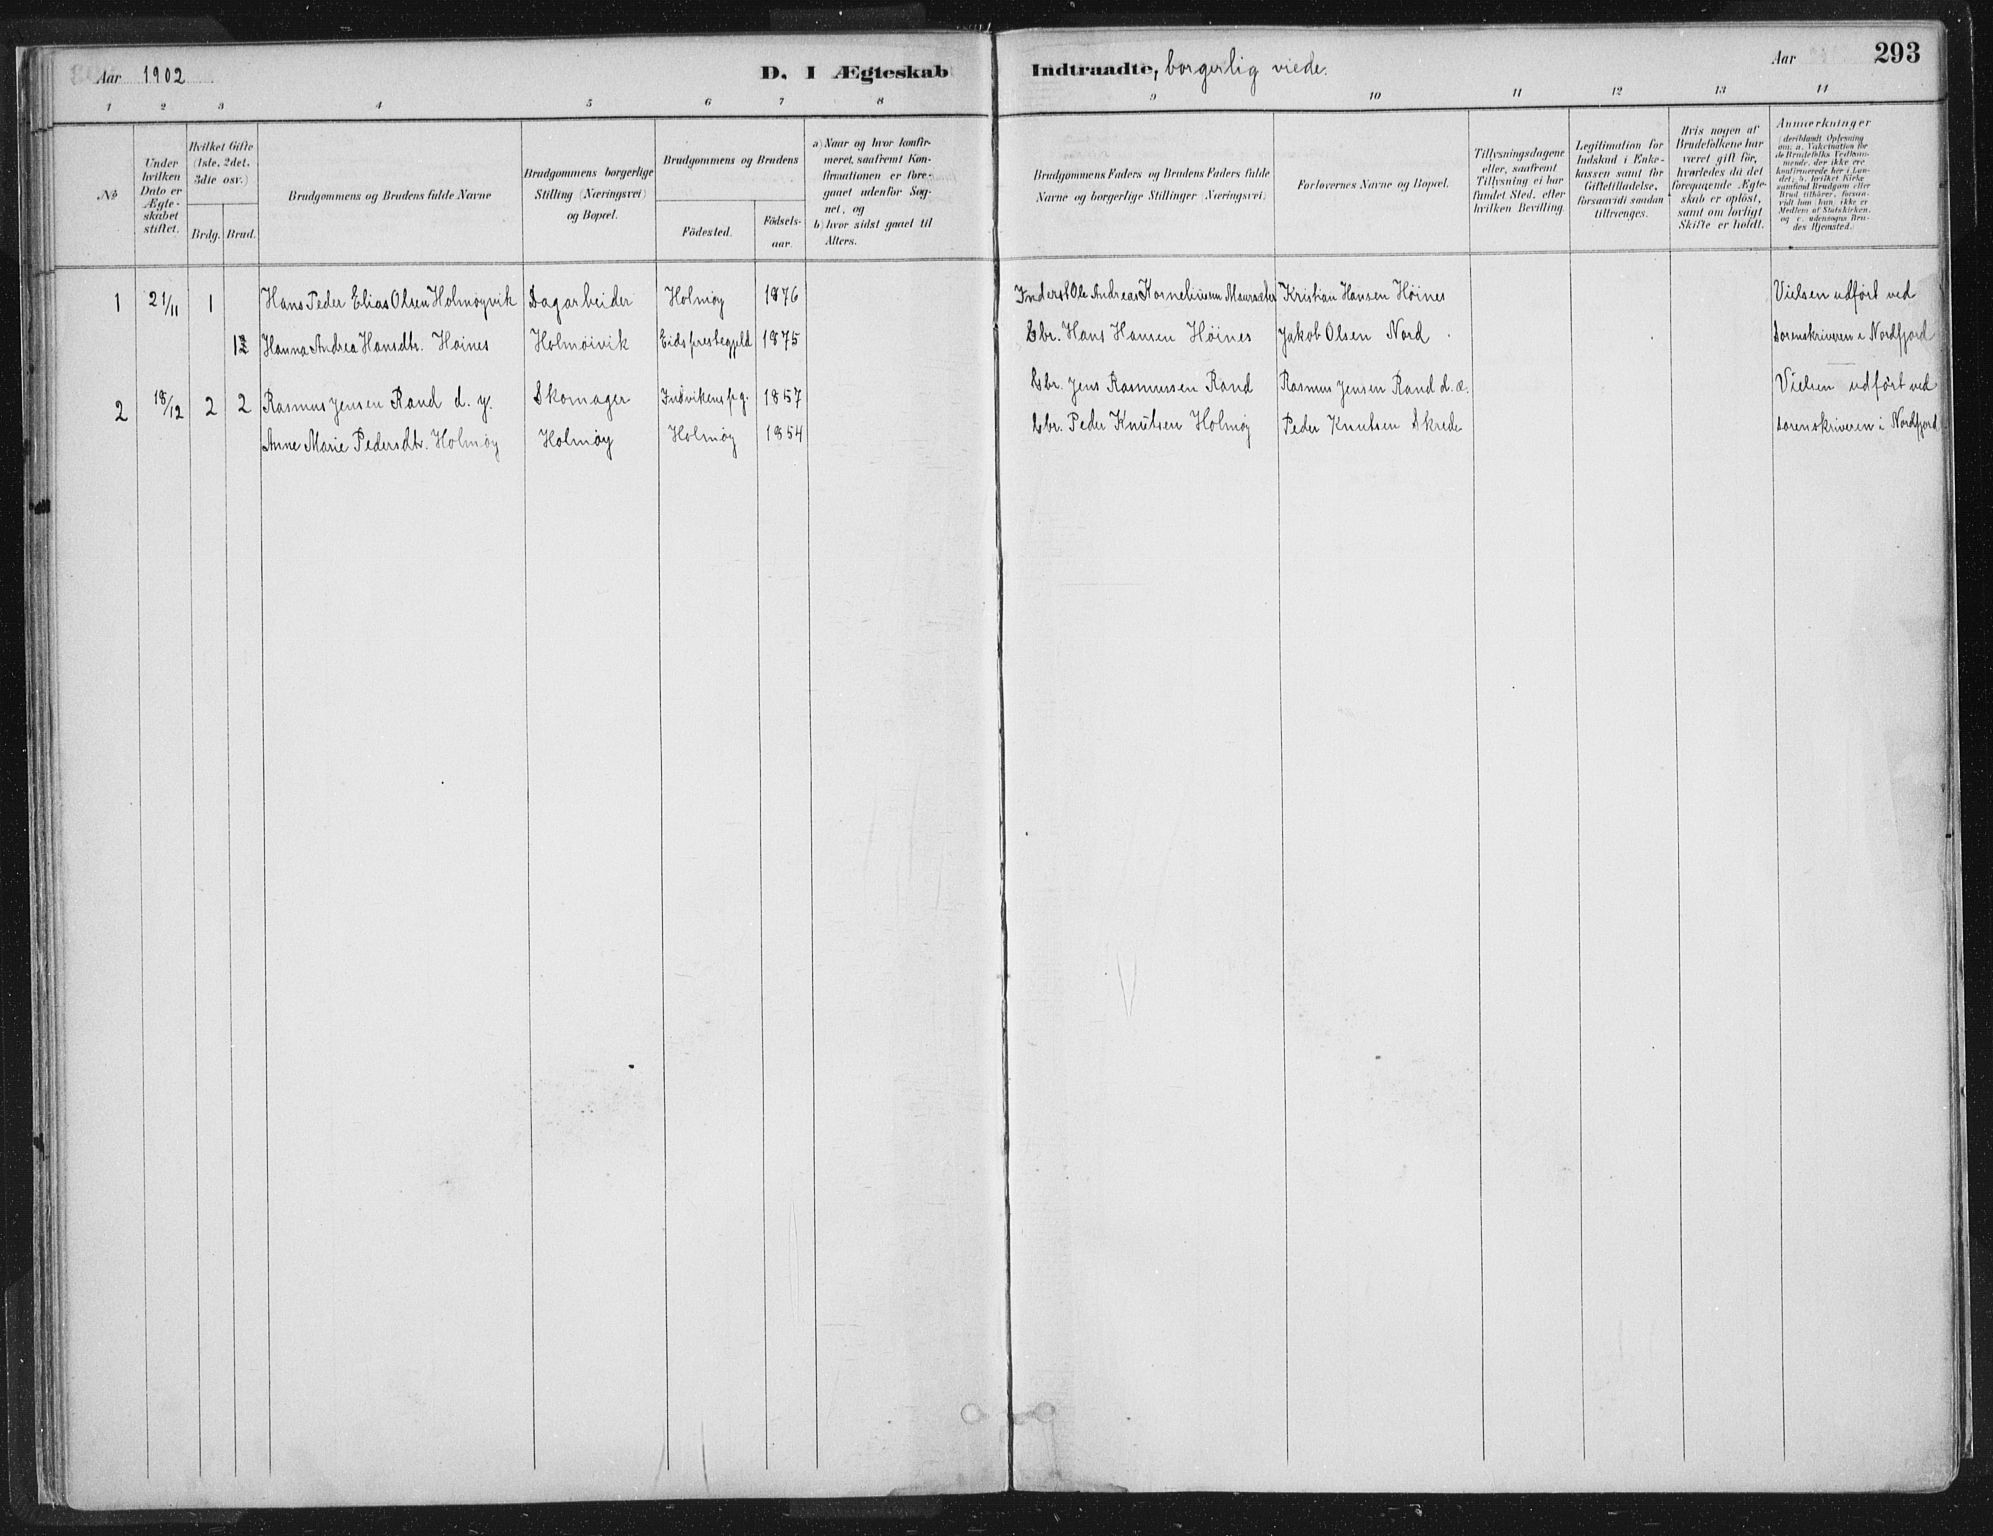 Aar 1902
D. I Ægteskab Indtraadte, borgerlig viede.
Aar
293
1 2 3 4 5 6 7 8 9 10 11 12 13 14
№
Under hvilken Dato er Ægteskabet stiftet.
Hvilket Gifte (1ste, 2det, 3die osv.)
Brdg. Brud.
Brudgommens og Brudens fulde Navne
Brudgommens borgerlige Stilling (Næringsvei) og Bopæl.
Brudgommens og Brudens
Födested. Födsels-aar.
a) Naar og hvor konfirmeret, saafremt Konfirmationen er foregaaet udenfor Sognet, og
b) hvor sidst gaaet til Alters.
Brudgommens Faders og Brudens Faders fulde Navne og borgerlige Stillinger (Næringsvei)
Forlovernes Navne og Bopæl.
Tillysningsdagene eller, saafremt Tillysning ei har fundet Sted, efter hvilken Bevilling.
Legitimation for Indskud i Enkekassen samt for Giftetilladelse, forsaavidt saadan tiltrænges.
Hvis nogen af Brudefolkene har været gift för, hvorledes da det foregaaende Ægteskab er oplöst, samt om lovligt Skifte er holdt.
Anmærkninger (deriblandt Oplysning om: a. Vakcination for de Brudefolks Vedkommende, der ikke ere konfirmerede her i Landet; b. hvilket Kirkesamfund Brudgom eller Brud tilhörer, forsaavidt han (hun) ikke er Medlem af Statskirken, og c. udensogns Brudes Hjemsted.
1 21/11 1 Hans Peder Elias Olsen Holmøyvik Dagarbeider Holmøy 1876 Inderst Ole Andreas Korneliussen Maursæter Kristian Hansen Höines Vielsen udfört ved
Hanna Andrea Hansdtr. Høines Holmøivik Eids prestegjeld 1875 Gbr. Hans Hansen Höines Jakob Olsen Nord Sorenskriveren i Nordfjord
2 18/12 2 2 Rasmus Jensen Rand d. y. Skomager Indvikens pg. 1857 Gbr. Jens Rasmussen Rand Rasmus Jensen Rand d. æ. Vielsen udfört ved
Anne Marie Pedersdtr. Holmøy Holmøy Holmøy 1854 Gbr. Peder Knutsen Holmøy Peder Knutsen Skrede sorenskriveren i Nordfjord